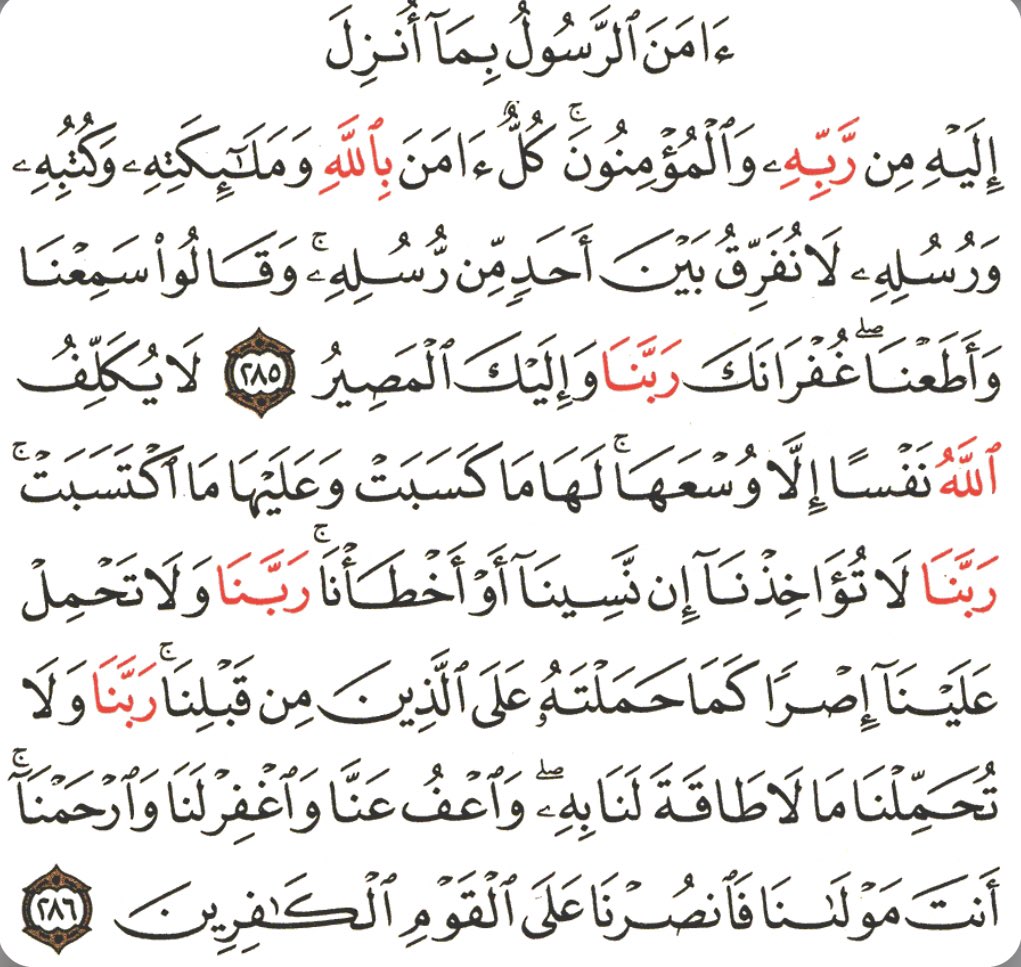 ءَامَنَ ٱلرَّسُولُ بِمَآ أُنزِلَ
إِلَيْهِ مِن رَّبِّهِۦ وَٱلْمُؤْمِنُونَۚ كُلٌّ ءَامَنَ بِٱللَّهِ وَمَلَـٰٓئِكَتِهِۦ وَكُتُبِهِۦ
وَرُسُلِهِۦ لَا نُفَرِّقُ بَيْنَ أَحَدٍ مِّن رُّسُلِهِۦۚ وَقَالُوا۟ سَمِعْنَا
وَأَطَعْنَاۖ غُفْرَانَكَ رَبَّنَا وَإِلَيْكَ ٱلْمَصِيرُ ٢٨٥ لَا يُكَلِّفُ
ٱللَّهُ نَفْسًا إِلَّا وُسْعَهَاۚ لَهَا مَا كَسَبَتْ وَعَلَيْهَا مَا ٱكْتَسَبَتْۗ
رَبَّنَا لَا تُؤَاخِذْنَآ إِن نَّسِينَآ أَوْ أَخْطَأْنَاۚ رَبَّنَا وَلَا تَحْمِلْ
عَلَيْنَآ إِصْرًا كَمَا حَمَلْتَهُۥ عَلَى ٱلَّذِينَ مِن قَبْلِنَاۚ رَبَّنَا وَلَا
تُحَمِّلْنَا مَا لَا طَاقَةَ لَنَا بِهِۦۖ وَٱعْفُ عَنَّا وَٱغْفِرْ لَنَا وَٱرْحَمْنَآۚ
أَنتَ مَوْلَىٰنَا فَٱنصُرْنَا عَلَى ٱلْقَوْمِ ٱلْكَـٰفِرِينَ ٢٨٦